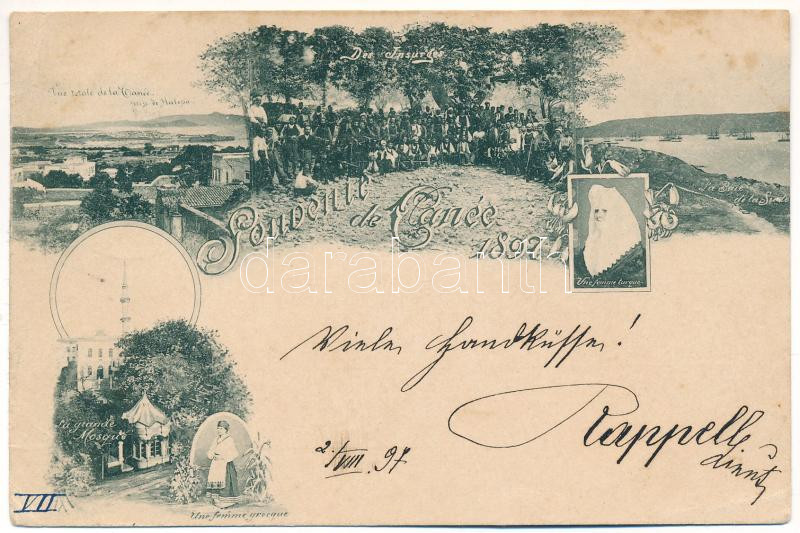 Des Insurgés
Vue totale de la Canée
prise de Halepa
Souvenir
de Canée
1897
La Baie
de la Sude
Une femme turque
darabanth.com
Viele Handküsse!
Rappell
Lieut
2./VIII. 97
La grande
Mosquée
Une femme grecque
VII